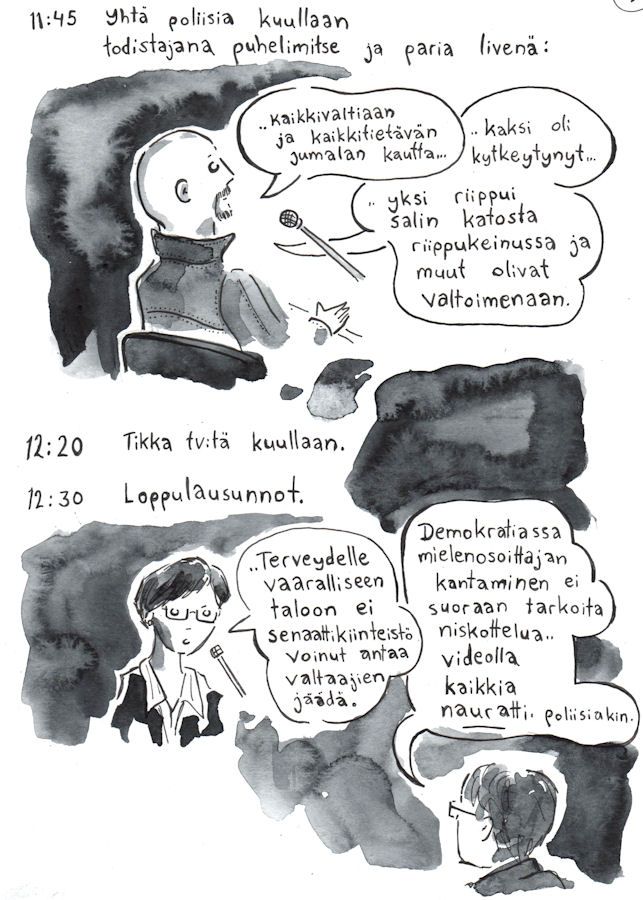 11:45 Yhtä poliisia kuullaan
todistajana puhelimitse ja paria livenä:
..kaikkivaltiaan
ja kaikkitietävän
jumalan kautta...
..kaksi oli
kytkeytynyt...
.. yksi riippui
salin katosta
riippukeinussa ja
muut olivat
valtoimenaan.
12:20 Tikka tv:tä kuullaan.
12:30 Loppulausunnot.
..Terveydelle
vaaralliseen
taloon ei
senaattikiinteistö
voinut antaa
valtaajien
jäädä.
Demokratiassa
mielenosoittajan
kantaminen ei
suoraan tarkoita
niskottelua..
videolla
kaikkia
nauratti. poliisiakin.